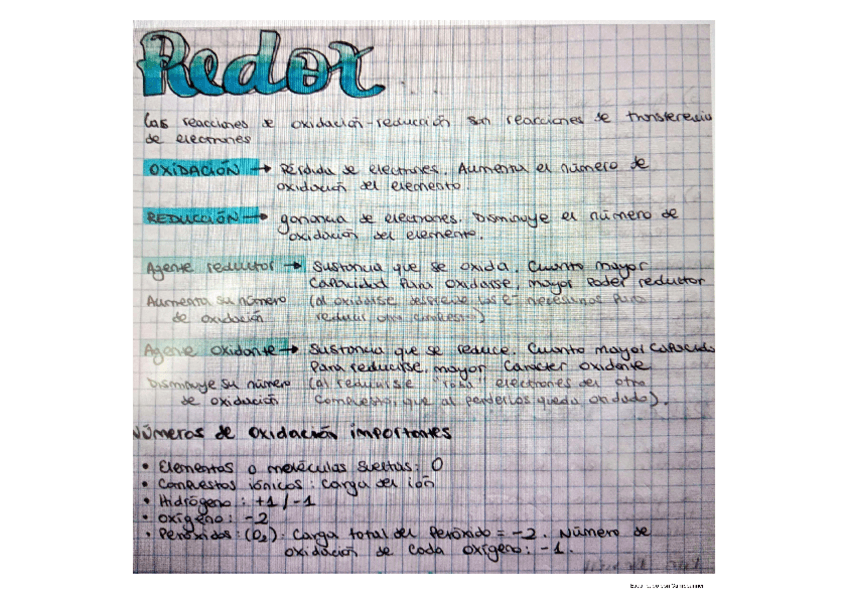 Redox
Las reacciones de oxidación-reducción son reacciones de transferencia
de electrones
OXIDACIÓN → Pérdida de electrones. Aumenta el número de
oxidación del elemento.
REDUCCIÓN → ganancia de electrones. Disminuye el número de
oxidación del elemento.
Agente reductor → Sustancia que se oxida. Cuanto mayor
capacidad para oxidarse, mayor poder reductor
Aumenta su número (al oxidarse desprende los e⁻ necesarios para
de oxidación reducir otro
Agente oxidante → Sustancia que se reduce. Cuanto mayor capacidad
para reducirse, mayor carácter oxidante
Disminuye su número (al reducirse "roba" electrones del otro
de oxidación compuesto, que al perderlos queda oxidado).
Números de oxidación importantes
• Elementos o moléculas sueltas: 0
• Compuestos iónicos: carga del ión
• Hidrógeno: +1/-1
• Oxígeno: -2
• Peróxidos: (O₂): Carga total del peróxido = -2. Número de
oxidación de cada oxígeno: -1.